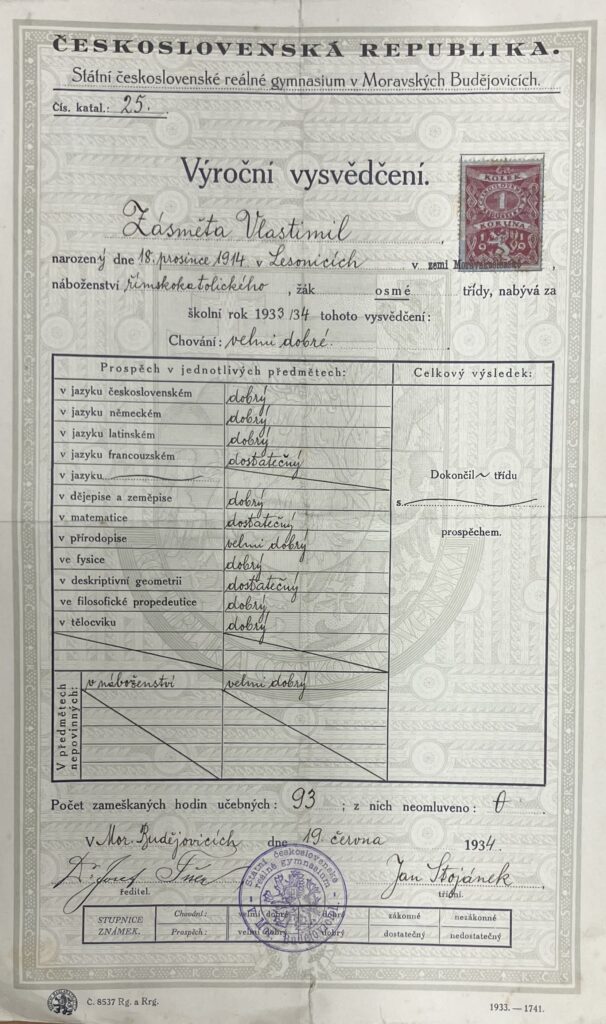 ČESKOSLOVENSKÁ REPUBLIKA.
Státní československé reálné gymnasium v Moravských Budějovicích.
Čís. katal.: 25.
Výroční vysvědčení.
KOLEK
1
KORUNA
Zásměta Vlastimil
narozený dne 18. prosince 1914 v Lesonicích v zemi Moravskoslezské
náboženství římskokatolického, žák osmé třídy, nabývá za
školní rok 1933/34 tohoto vysvědčení:
Chování: velmi dobré.
Prospěch v jednotlivých předmětech: Celkový výsledek:
v jazyku československém dobrý
v jazyku německém dobrý
v jazyku latinském dobrý
v jazyku francouzském dostatečný
v jazyku
v dějepise a zeměpise dobrý
v matematice dostatečný
v přírodopise velmi dobrý
ve fysice dobrý
v deskriptivní geometrii dostatečný
ve filosofické propedeutice dobrý
v tělocviku dobrý
Dokončil třídu
s
prospěchem.
V předmětech nepovinných:
v náboženství velmi dobrý
Počet zameškaných hodin učebných: 93; z nich neomluveno: 0
v Mor. Budějovicích dne 19. června 1934.
Dr. Josef
ředitel.
Jan Stojánek
třídní.
Státní československé reálné gymnasium
STUPNICE ZNÁMEK.
Chování: velmi dobré dobré zákonné nezákonné
Prospěch: velmi dobrý dobrý dostatečný nedostatečný
Č. 8537 Rg. a Krg.
1933. — 1741.